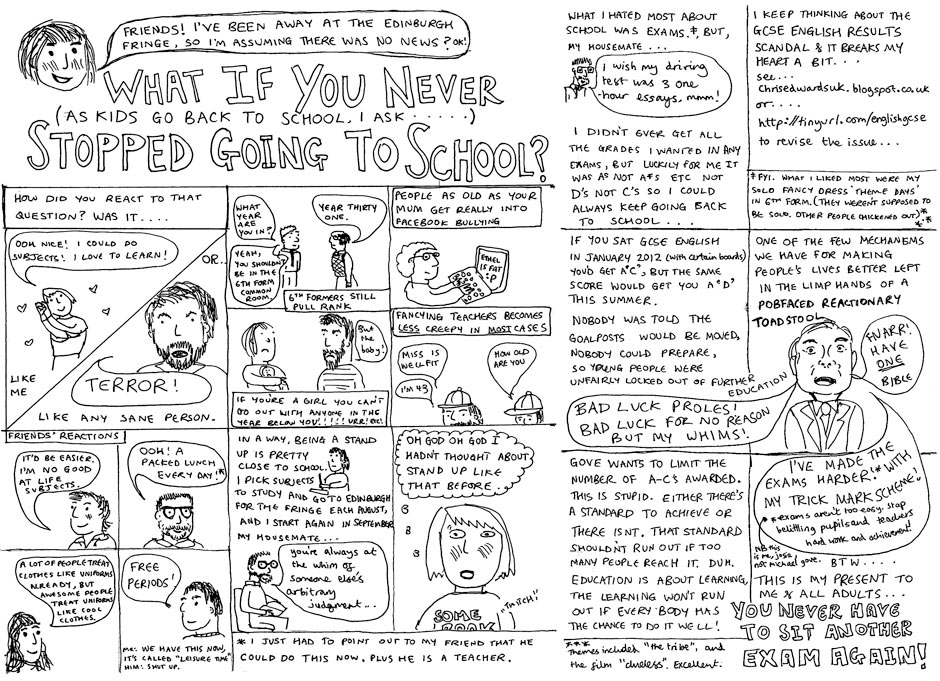 FRIENDS! I'VE BEEN AWAY AT THE EDINBURGH
FRINGE, SO I'M ASSUMING THERE WAS NO NEWS? OK!
WHAT IF YOU NEVER
(AS KIDS GO BACK TO SCHOOL, I ASK.....)
STOPPED GOING TO SCHOOL?
HOW DID YOU REACT TO THAT
QUESTION? WAS IT....
OOH NICE! I COULD DO
SUBJECTS! I LOVE TO LEARN!
LIKE
ME
OR...
TERROR!
LIKE ANY SANE PERSON.
WHAT
YEAR
ARE
YOU IN?
YEAR THIRTY
ONE.
YEAH,
YOU SHOULDN'T
BE IN THE
6TH FORM
COMMON
ROOM.
6TH FORMERS STILL
PULL RANK
But
the
baby!
IF YOU'RE A GIRL YOU CAN'T
GO OUT WITH ANYONE IN THE
YEAR BELOW YOU!!!!! URR! ETC.
PEOPLE AS OLD AS YOUR
MUM GET REALLY INTO
FACEBOOK BULLYING
ETHEL
IS FAT
:P
FANCYING TEACHERS BECOMES
LESS CREEPY IN MOST CASES
MISS IS
WELL FIT
I'M 43
HOW OLD
ARE YOU
FRIENDS' REACTIONS
IT'D BE EASIER.
I'M NO GOOD
AT LIFE
SUBJECTS.
OOH! A
PACKED LUNCH
EVERY DAY!*
A LOT OF PEOPLE TREAT
CLOTHES LIKE UNIFORMS
ALREADY, BUT
AWESOME PEOPLE
TREAT UNIFORMS
LIKE COOL
CLOTHES.
FREE
PERIODS!
ME: WE HAVE THIS NOW,
IT'S CALLED "LEISURE TIME"
HIM: SHUT UP.
IN A WAY, BEING A STAND
UP IS PRETTY
CLOSE TO SCHOOL.
I PICK SUBJECTS
TO STUDY AND GO TO EDINBURGH
FOR THE FRINGE EACH AUGUST,
AND I START AGAIN IN SEPTEMBER
MY HOUSEMATE...
you're always at
the whim of
someone else's
arbitrary
judgment...
OH GOD OH GOD I
HADN'T THOUGHT ABOUT
STAND UP LIKE
THAT BEFORE..
SOME
BOOK
"TWITCH"
* I JUST HAD TO POINT OUT TO MY FRIEND THAT HE
COULD DO THIS NOW. PLUS HE IS A TEACHER.
WHAT I HATED MOST ABOUT
SCHOOL WAS EXAMS.‡, BUT,
MY HOUSEMATE...
I wish my driving
test was 3 one
hour essays, mmm!
I DIDN'T EVER GET ALL
THE GRADES I WANTED IN ANY
EXAMS, BUT LUCKILY FOR ME IT
WAS AS NOT A*S ETC NOT
D'S NOT C'S SO I COULD
ALWAYS KEEP GOING BACK
TO SCHOOL...
I KEEP THINKING ABOUT THE
GCSE ENGLISH RESULTS
SCANDAL & IT BREAKS MY
HEART A BIT...
see...
chrisedwardsuk.blogspot.co.uk
or....
http://tinyurl.com/englishgcse
to revise the issue...
‡ FYI. WHAT I LIKED MOST WERE MY
SOLO FANCY DRESS 'THEME DAYS'
IN 6TH FORM. (THEY WEREN'T SUPPOSED TO
BE SOLO. OTHER PEOPLE CHICKENED OUT)***
IF YOU SAT GCSE ENGLISH
IN JANUARY 2012 (with certain boards)
YOU'D GET A "C", BUT THE SAME
SCORE WOULD GET YOU A "D"
THIS SUMMER.
NOBODY WAS TOLD THE
GOALPOSTS WOULD BE MOVED,
NOBODY COULD PREPARE,
SO YOUNG PEOPLE WERE
UNFAIRLY LOCKED OUT OF FURTHER
EDUCATION
ONE OF THE FEW MECHANISMS
WE HAVE FOR MAKING
PEOPLE'S LIVES BETTER LEFT
IN THE LIMP HANDS OF A
POBFACED REACTIONARY
TOADSTOOL
FNARR!
HAVE
ONE
BIBLE
BAD LUCK PROLES!
BAD LUCK FOR NO REASON
BUT MY WHIMS!
GOVE WANTS TO LIMIT THE
NUMBER OF A-C'S AWARDED.
THIS IS STUPID. EITHER THERE'S
A STANDARD TO ACHIEVE OR
THERE ISNT. THAT STANDARD
SHOULDN'T RUN OUT IF TOO
MANY PEOPLE REACH IT. DUH.
EDUCATION IS ABOUT LEARNING,
THE LEARNING WON'T RUN
OUT IF EVERYBODY HAS
THE CHANCE TO DO IT WELL!
I'VE MADE THE
EXAMS HARDER!** WITH
MY TRICK MARK SCHEME!
**exams aren't too easy, stop
belittling pupils and teachers
hard work and achievement!
NB this
is me, josie,
not michael gove.
BTW....
THIS IS MY PRESENT TO
ME & ALL ADULTS...
YOU NEVER HAVE
TO SIT ANOTHER
EXAM AGAIN!
***
Themes included "the tribe", and
the film "clueless". Excellent.